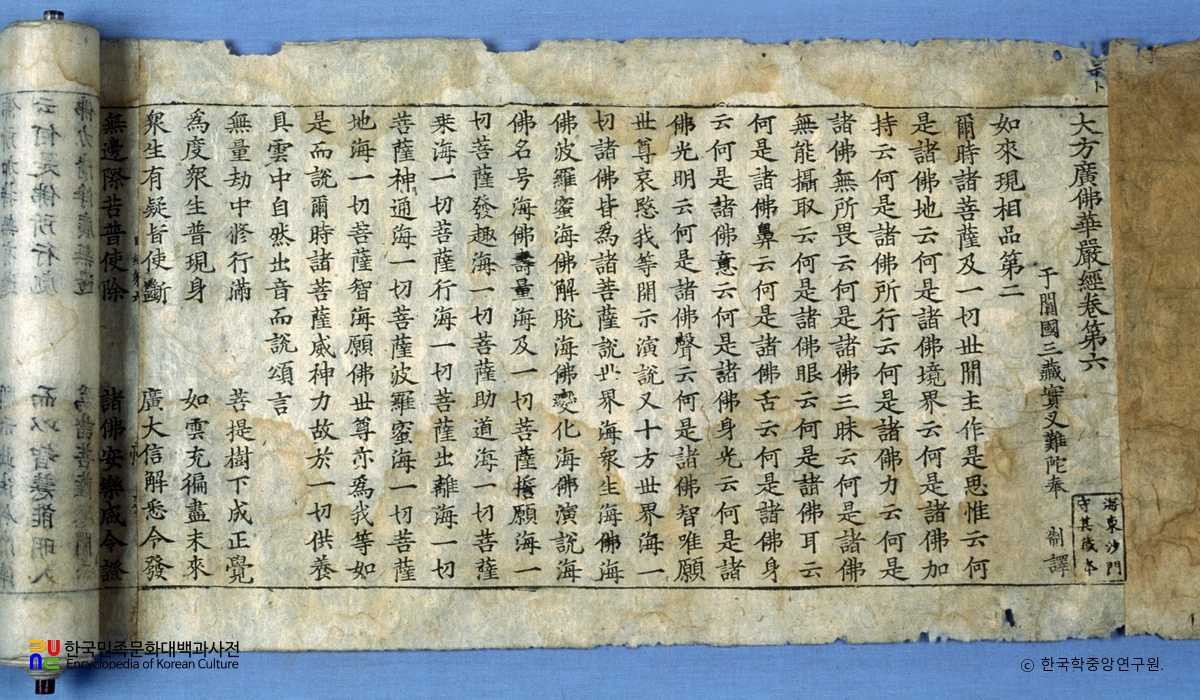 大方廣佛華嚴經卷第六
于闐國三藏實叉難陀奉 制譯
海東沙門
守其藏本
如來現相品第二
爾時諸菩薩及一切世間主作是思惟云何
是諸佛地云何是諸佛境界云何是諸佛加
持云何是諸佛所行云何是諸佛力云何是
諸佛無所畏云何是諸佛三昧云何是諸佛
無能攝取云何是諸佛眼云何是諸佛耳云
何是諸佛鼻云何是諸佛舌云何是諸佛身
云何是諸佛意云何是諸佛身光云何是諸
佛光明云何是諸佛聲云何是諸佛智唯願
世尊哀愍我等開示演說又十方世界海一
切諸佛皆為諸菩薩說世界海衆生海佛海
佛波羅蜜海佛解脫海佛變化海佛演說海
佛名号海佛壽量海及一切菩薩誓願海一
切菩薩發趣海一切菩薩助道海一切菩薩
乘海一切菩薩行海一切菩薩出離海一切
菩薩神通海一切菩薩波羅蜜海一切菩薩
地海一切菩薩智海願佛世尊亦為我等如
是而說爾時諸菩薩威神力故於一切供養
具雲中自然出音而說頌言
無量劫中修行滿 菩提樹下成正覺
為度衆生普現身 如雲充徧盡未來
衆生有疑皆使斷 廣大信解悉令發
無邊際苦普使除 諸佛安樂咸令證
한국민족문화대백과사전
Encyclopedia of Korean Culture
ⓒ 한국학중앙연구원.